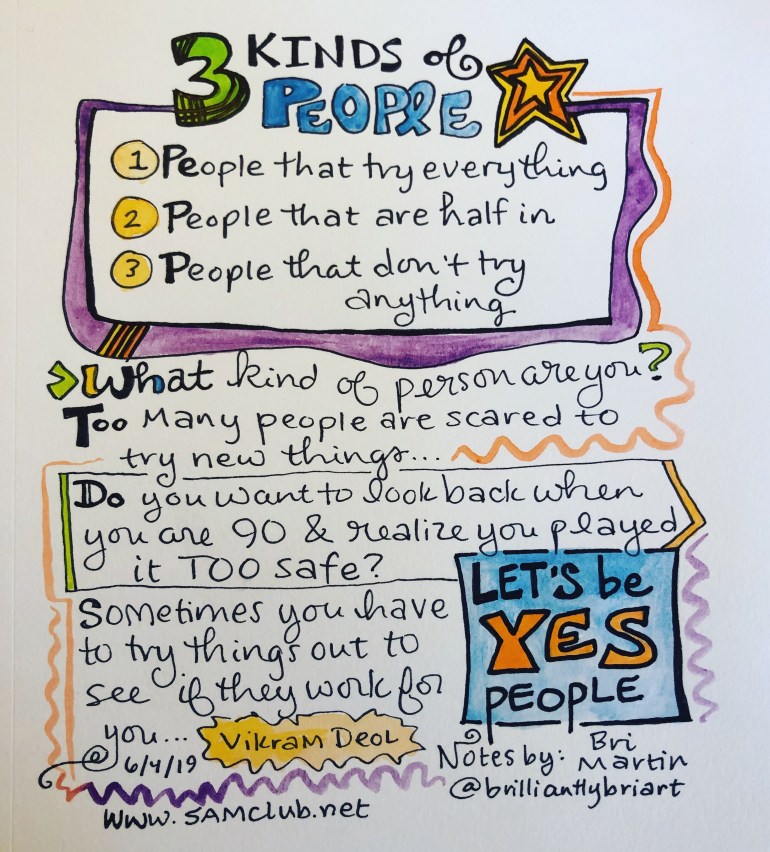 3 KINDS of
PEOPLE
1 People that try everything
2 People that are half in
3 People that don't try
anything
What kind of person are you?
Too Many people are scared to
try new things...
Do you want to look back when
you are 90 & realize you played
it TOO safe?
Sometimes you have
to try things out to
see if they work for
you...
LET'S be
YES
PEOPLE
@ 6/4/19
Vikram Deol
Notes by: Bri
Martin
@brilliantlybriart
www.SAMclub.net